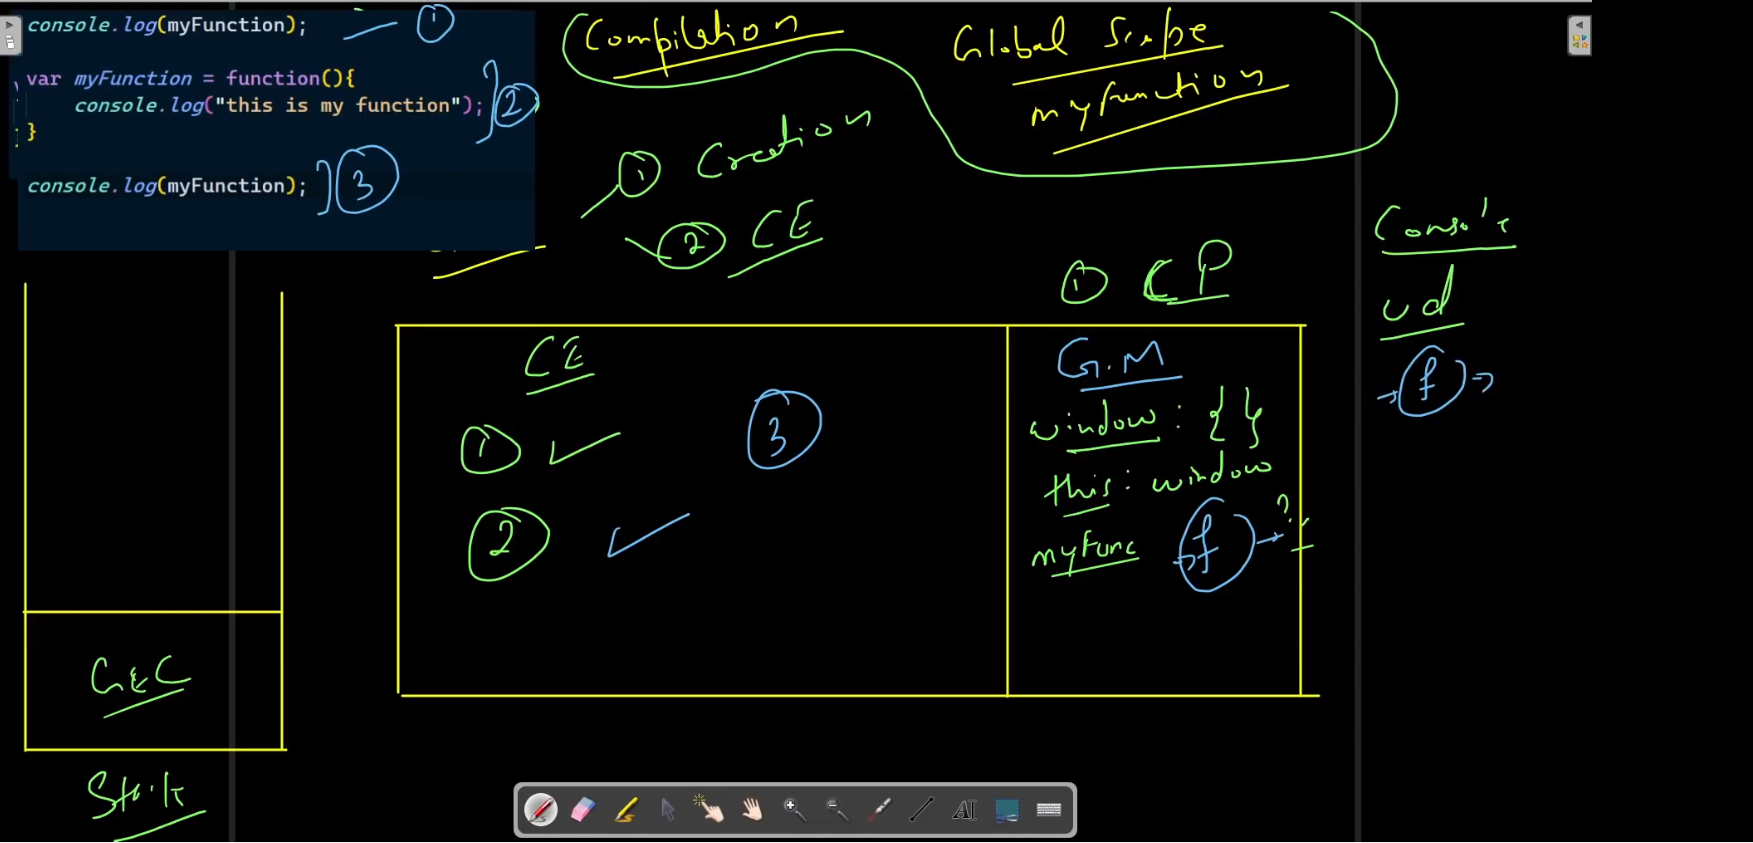 console.log(myFunction);
1
var myFunction = function(){
console.log("this is my function");
}
2
console.log(myFunction);
3
Compilation
Global Scope
myfunction
1 Creation
2 CE
1 CP
Console
ud
f
CE
1
2
3
G.M
window : { }
this : window
myFunc f ?
GEC
AI